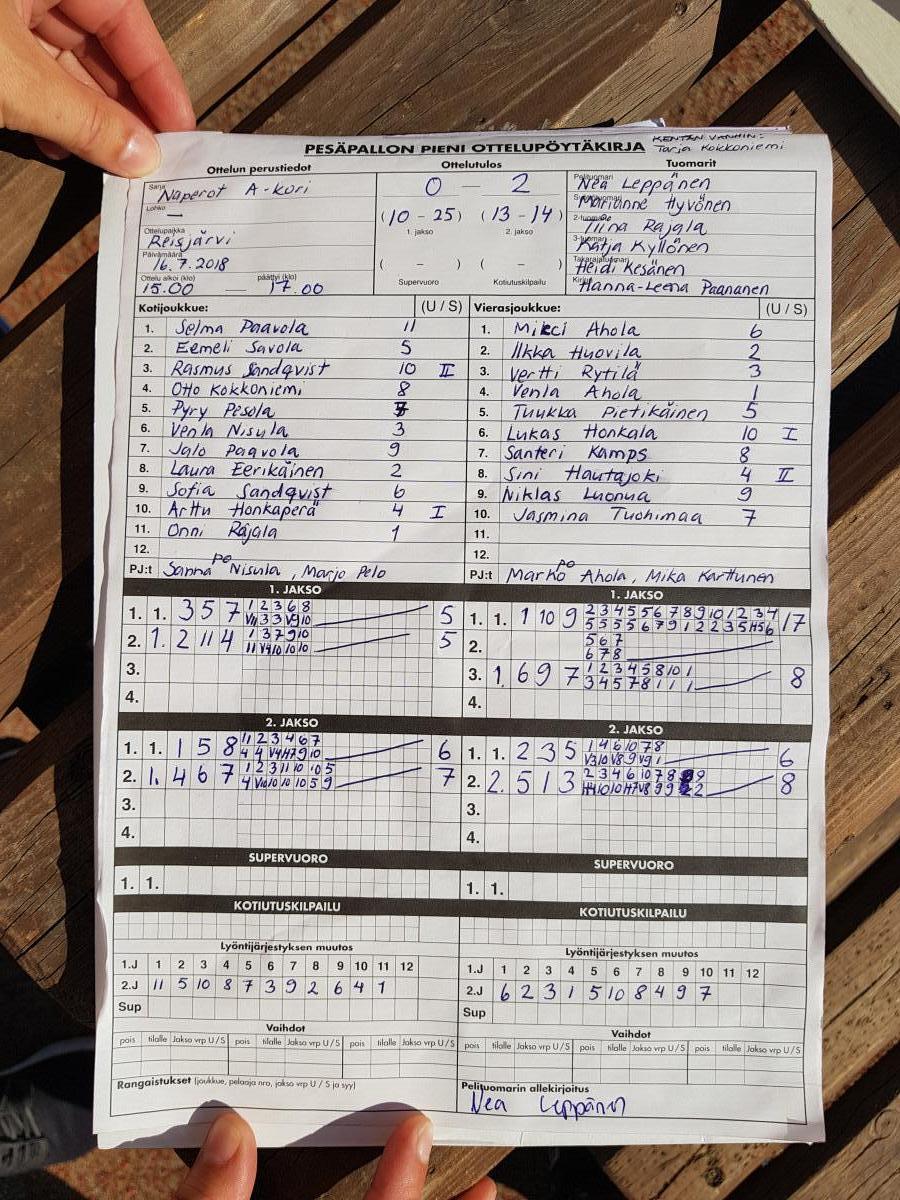 PESÄPALLON PIENI OTTELUPÖYTÄKIRJA
KENTÄN VANHIN:
Tarja Kokkoniemi
Ottelun perustiedot Ottelutulos Tuomarit
Sarja Naperot A-kori
Lohko —
Ottelupaikka Reisjärvi
Päivämäärä 16.7.2018
Ottelu alkoi (klo) päättyi (klo)
15.00 — 17.00
0 — 2
(10 - 25) (13 - 14)
1. jakso 2. jakso
( - ) ( - )
Supervuoro Kotiutuskilpailu
Pelituomari Nea Leppänen
Marianne Hyvönen
2-tuomari Tiina Rajala
3-tuomari Katja Kyllönen
Takarajatuomari Heidi Kesänen
Kirjuri Hanna-Leena Paananen
Kotijoukkue: (U / S)
1. Selma Paavola 11
2. Eemeli Savola 5
3. Rasmus Sandqvist 10 II
4. Otto Kokkoniemi 8
5. Pyry Pesola 7
6. Venla Nisula 3
7. Jalo Paavola 9
8. Laura Eerikäinen 2
9. Sofia Sandqvist 6
10. Arttu Honkaperä 4 I
11. Onni Rajala 1
12.
PJ:t Sanna Nisula, Marjo Pelo
po
Vierasjoukkue: (U / S)
1. Mikci Ahola 6
2. Ilkka Huovila 2
3. Vertti Rytilä 3
4. Venla Ahola 1
5. Tuukka Pietikäinen 5
6. Lukas Honkala 10 I
7. Santeri Kamps 8
8. Sini Hautajoki 4 II
9. Niklas Luonua 9
10. Jasmina Tuohimaa 7
11.
12.
PJ:t Marko Ahola, Mika Karttunen
po
1. JAKSO
1. 1. 3 5 7 1 2 3 6 8 5
2. 1. 2 11 4 1 3 7 9 10 5
3.
4.
1. JAKSO
1. 1. 1 10 9 2 3 4 5 5 6 7 8 9 10 1 2 3 4 17
2. 5 6 7
6 7 8
3. 1. 6 9 7 1 2 3 4 5 8 10 1 8
3 4 5 7 8 1 1 1
4.
2. JAKSO
1. 1. 1 5 8 11 2 3 4 6 7 6
2. 1. 4 6 7 1 2 3 11 10 10 5 7
3.
4.
2. JAKSO
1. 1. 2 3 5 1 4 6 10 7 8 6
2. 2. 5 1 3 2 3 4 6 10 7 8 9 8
3.
4.
SUPERVUORO
1. 1.
SUPERVUORO
1. 1.
KOTIUTUSKILPAILU
KOTIUTUSKILPAILU
Lyöntijärjestyksen muutos
1.J 1 2 3 4 5 6 7 8 9 10 11 12
2.J 11 5 10 8 7 3 9 2 6 4 1
Sup
Lyöntijärjestyksen muutos
1.J 1 2 3 4 5 6 7 8 9 10 11 12
2.J 6 2 3 1 5 10 8 4 9 7
Sup
Vaihdot
pois tilalle Jakso vrp U / S pois tilalle Jakso vrp U / S pois tilalle Jakso vrp U / S
Vaihdot
pois tilalle Jakso vrp U / S pois tilalle Jakso vrp U / S pois tilalle Jakso vrp U / S
Rangaistukset (joukkue, pelaaja nro, jakso vrp U / S ja syy)
Pelituomarin allekirjoitus
Nea Leppänen